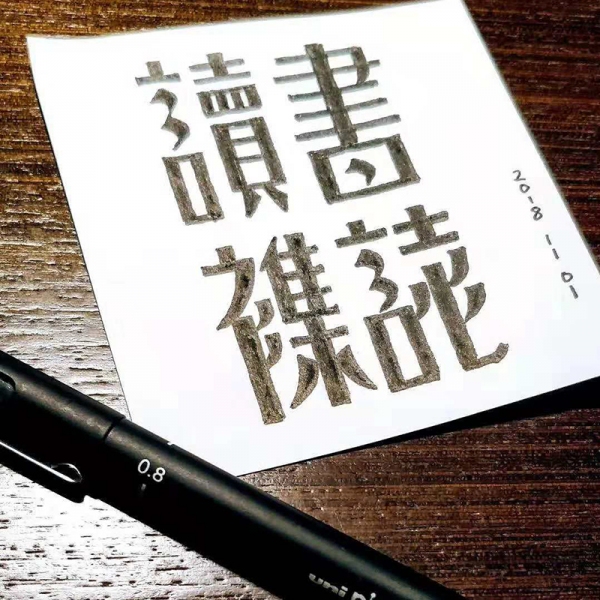 讀書
襍誌
2018 11 01
0.8
uni